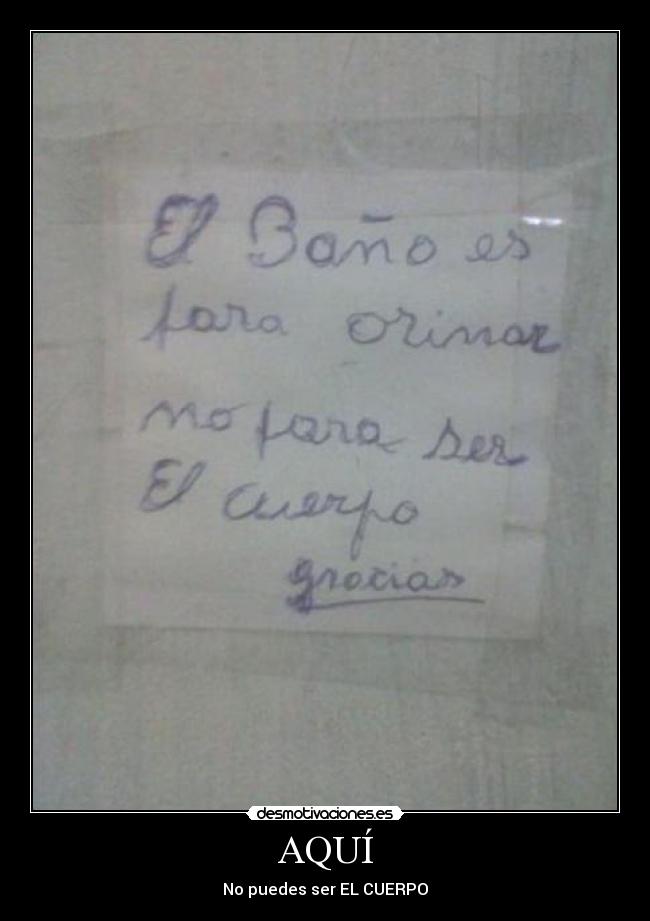 El Baño es
para orinar
no para ser
El cuerpo
gracias
desmotivaciones.es
AQUÍ
No puedes ser EL CUERPO